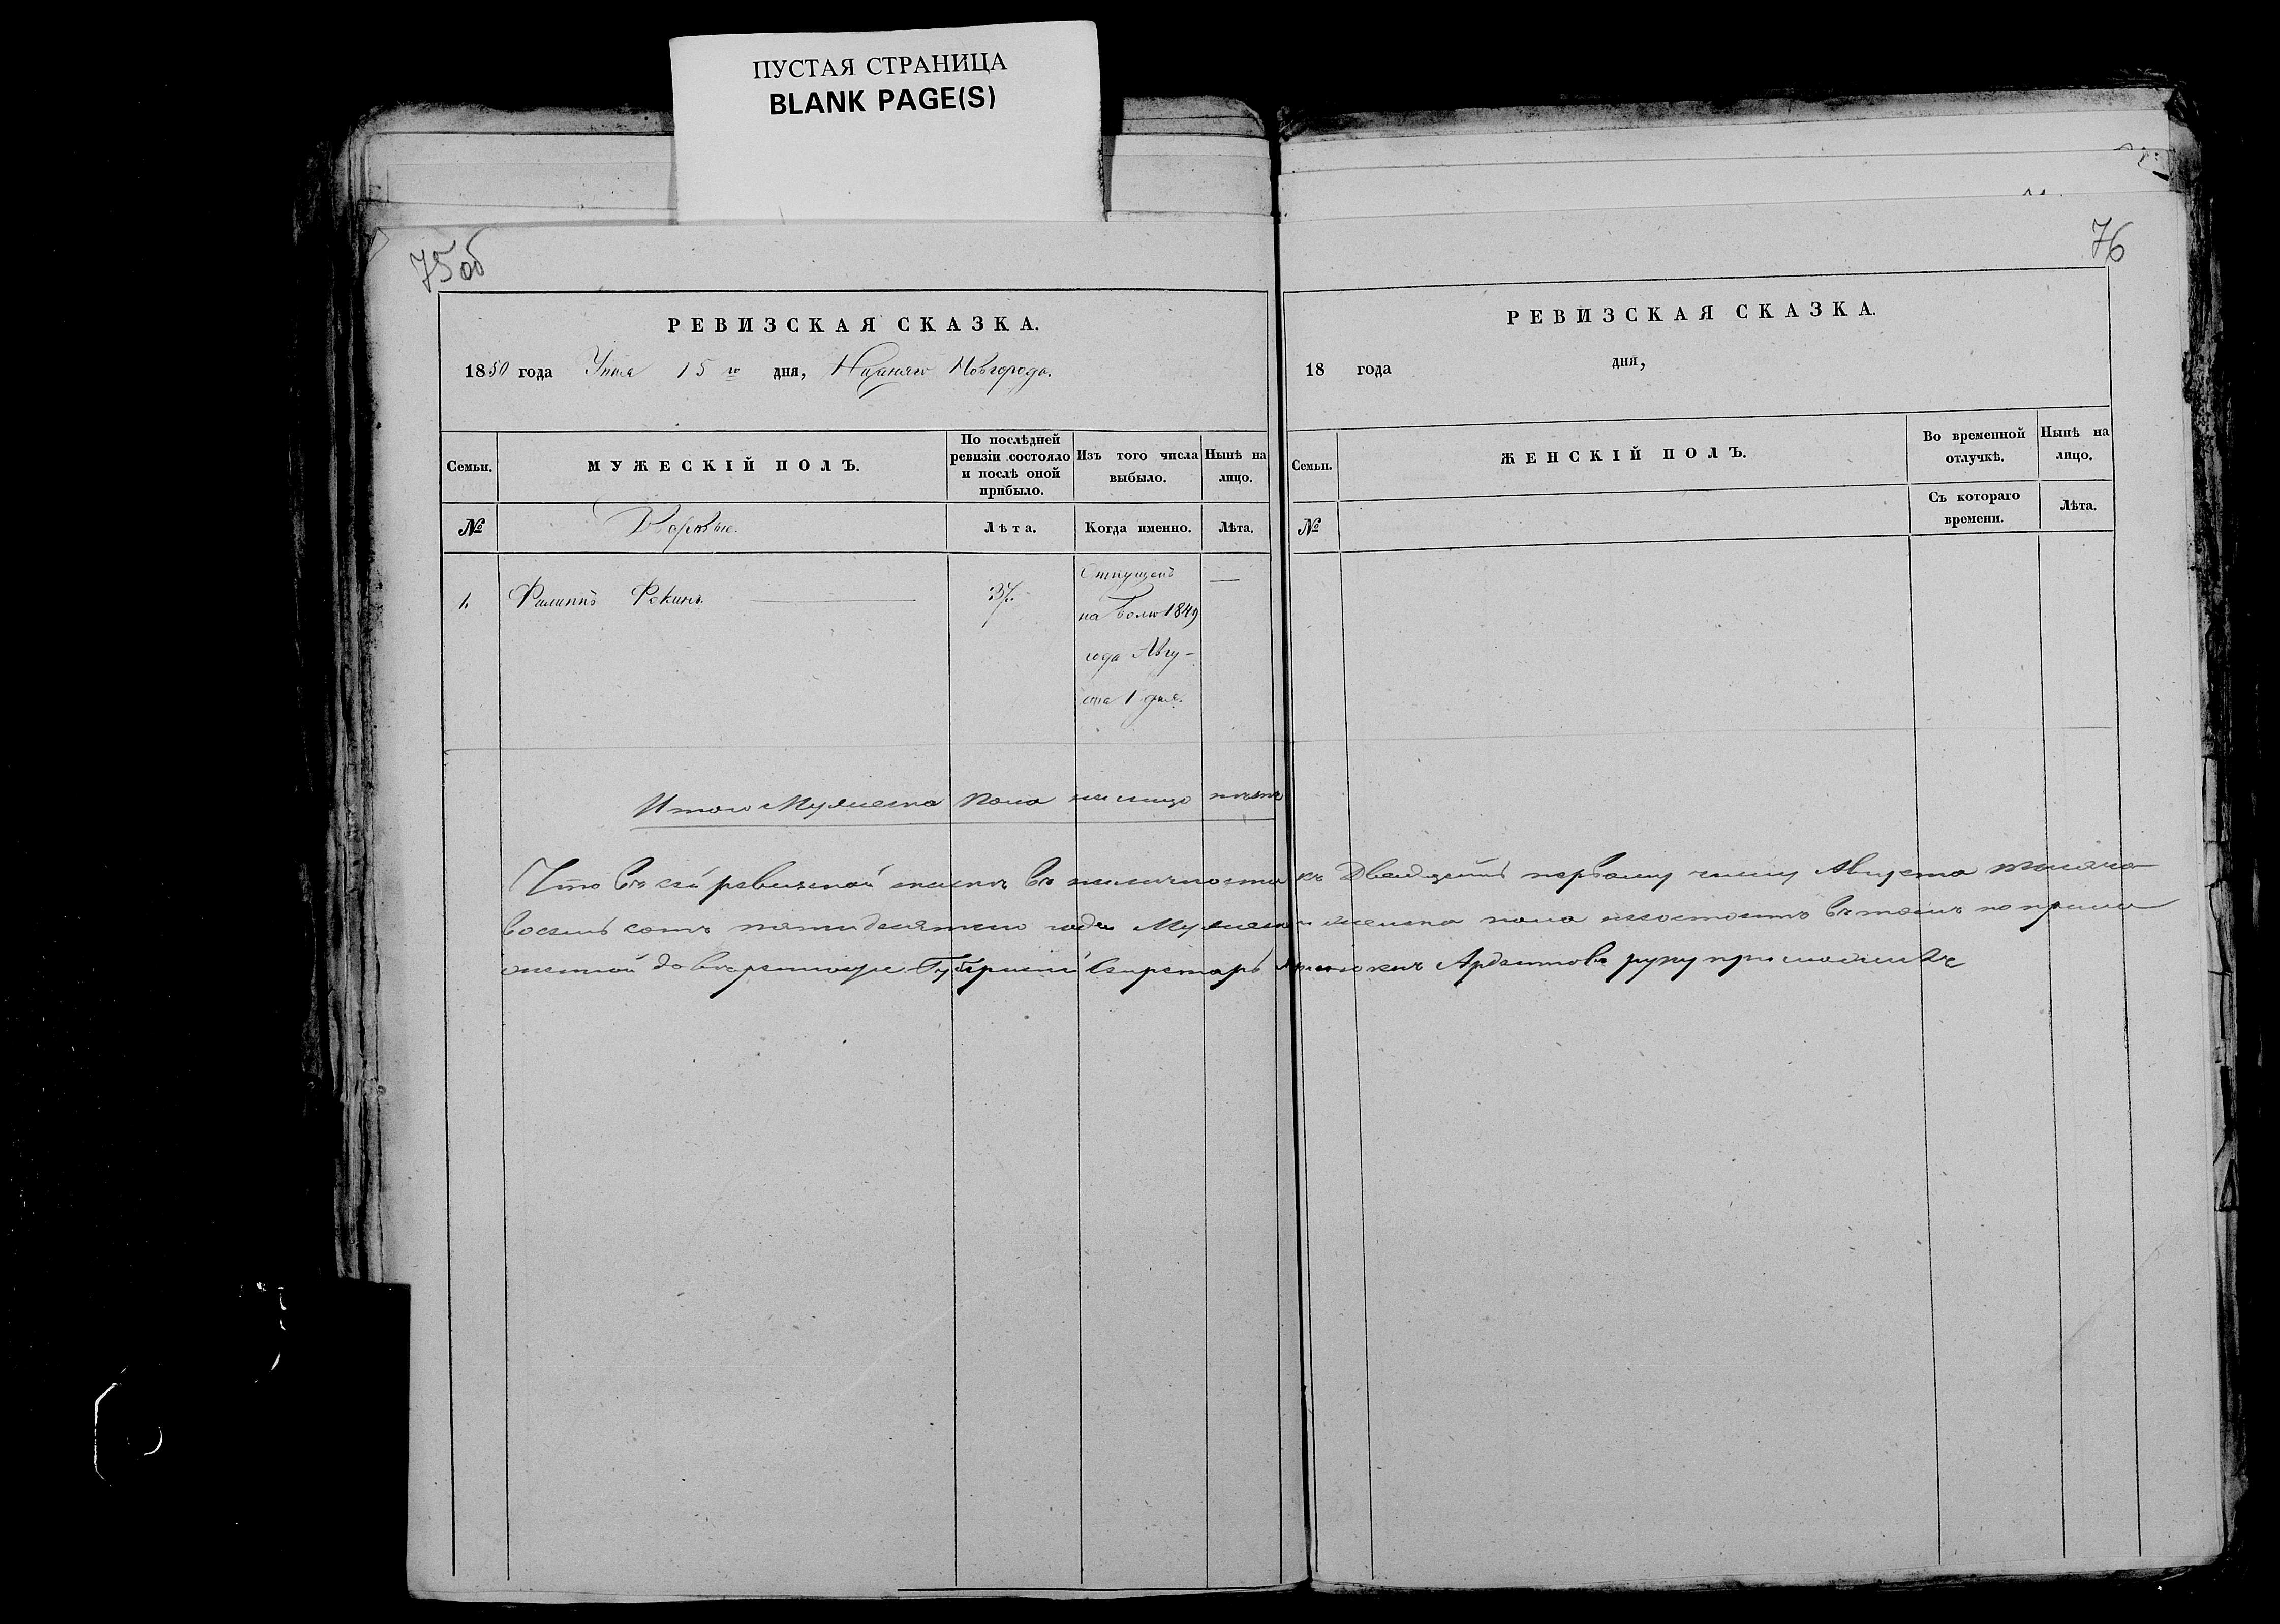 ПУСТАЯ СТРАНИЦА
BLANK PAGE(S)
75об
РЕВИЗСКАЯ СКАЗКА.
1850 года 15го дня, Нижняго Новгорода.
Семьи.
МУЖЕСКІЙ ПОЛЪ.
По послѣдней ревизіи состояло и послѣ оной прибыло.
Изъ того числа выбыло.
Нынѣ на лицо.
№
Дворовые.
Лѣта.
Когда именно.
Лѣта.
1.
Филиппъ
37.
Отпущенъ
на волю 1849
года Авгу-
ста 1 дня.
Итого Мужеска пола на лицо нѣтъ
76
РЕВИЗСКАЯ СКАЗКА.
18 года дня,
Семьи.
ЖЕНСКІЙ ПОЛЪ.
Во временной отлучкѣ.
Нынѣ на лицо.
№
Съ котораго времени.
Лѣта.
Что въ сей ревизской сказкѣ въ наличности къ Двадцать первому числу Августа тысяча
восемь сотъ пятидесятаго года Мужеска и женска пола несостоитъ въ томъ по
довѣренности Губернскій Секретарь руку приложилъ